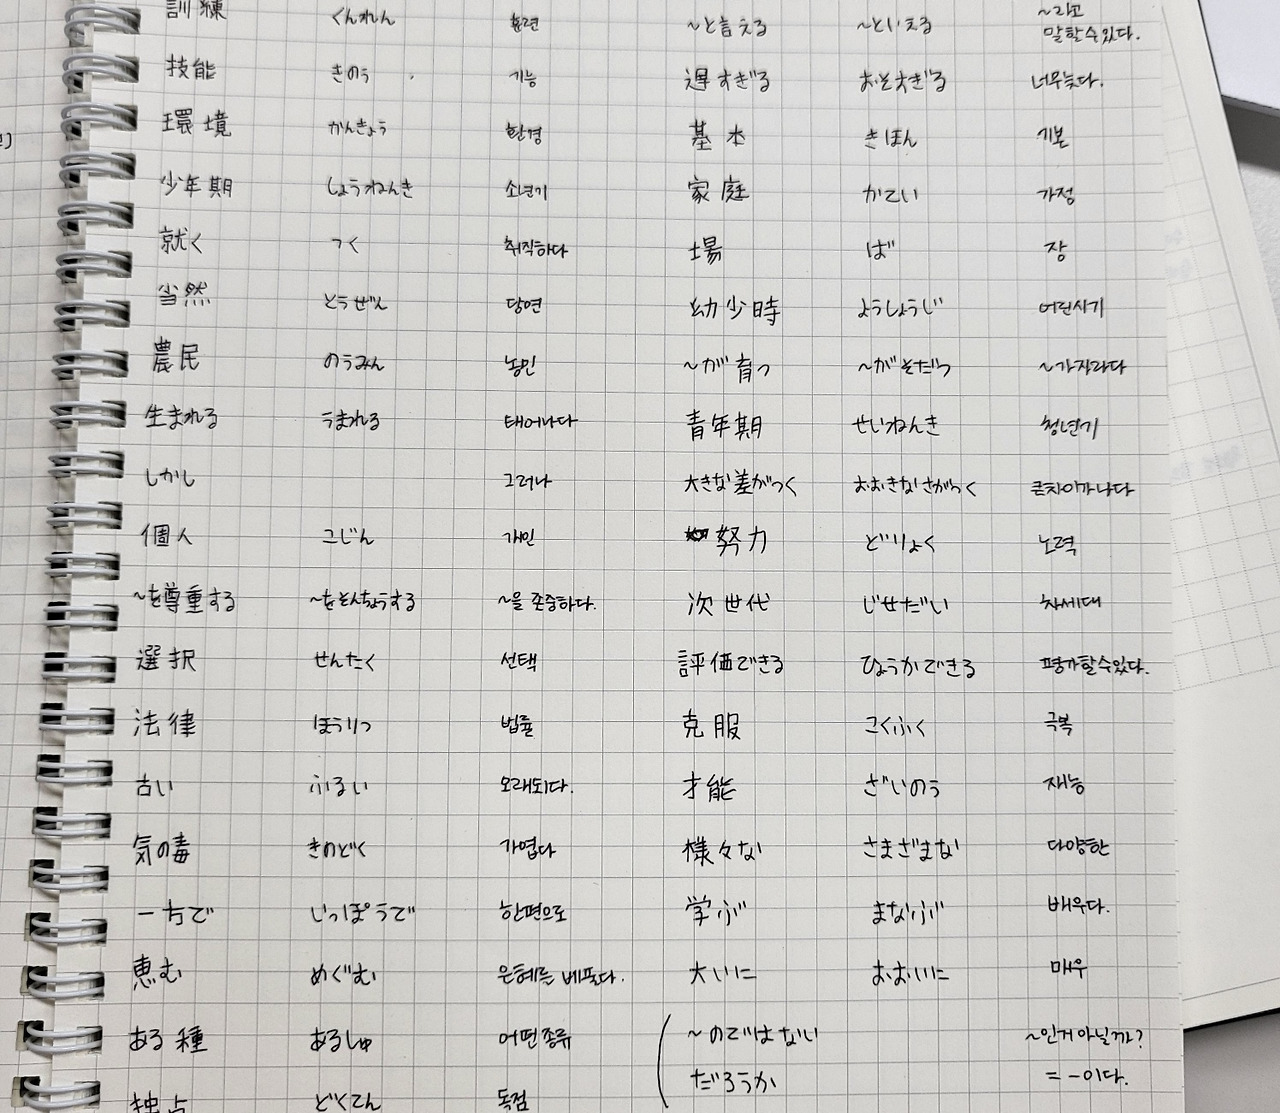 訓練 くんれん 훈련
技能 きのう 기능
環境 かんきょう 환경
少年期 しょうねんき 소년기
就く つく 취직하다
当然 とうぜん 당연
農民 のうみん 농민
生まれる うまれる 태어나다
しかし 그러나
個人 こじん 개인
~を尊重する ~をそんちょうする ~을 존중하다.
選択 せんたく 선택
法律 ほうりつ 법률
古い ふるい 오래되다.
気の毒 きのどく 가엽다
一方で いっぽうで 한편으로
恵む めぐむ 은혜를 베풀다.
ある種 あるしゅ 어떤 종류
独占 どくてん 독점
~と言える ~といえる ~라고 말할 수 있다.
遅すぎる おそすぎる 너무 늦다.
基本 きほん 기본
家庭 かてい 가정
場 ば 장
幼少時 ようしょうじ 어린시기
~が育つ ~がそだつ ~가 자라다
青年期 せいねんき 청년기
大きな差がつく おおきなさがつく 큰 차이가 나다
努力 どりょく 노력
次世代 じせだい 차세대
評価できる ひょうかできる 평가할 수 있다.
克服 こくふく 극복
才能 ざいのう 재능
様々な さまざまな 다양한
学ぶ まなぶ 배우다.
大いに おおいに 매우
~のではない ~인거 아닐까?
だろうか = -이다.